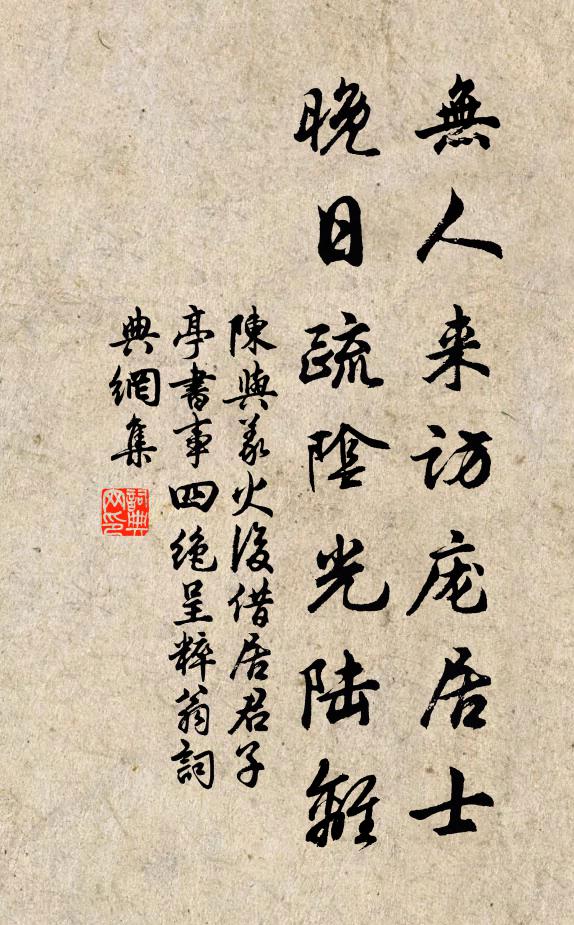 無人来訪庞居士
晚日疏陰光陆離
陳與義火後借居君子
亭書事四絶呈粹翁詞
典網集
詞典
网印